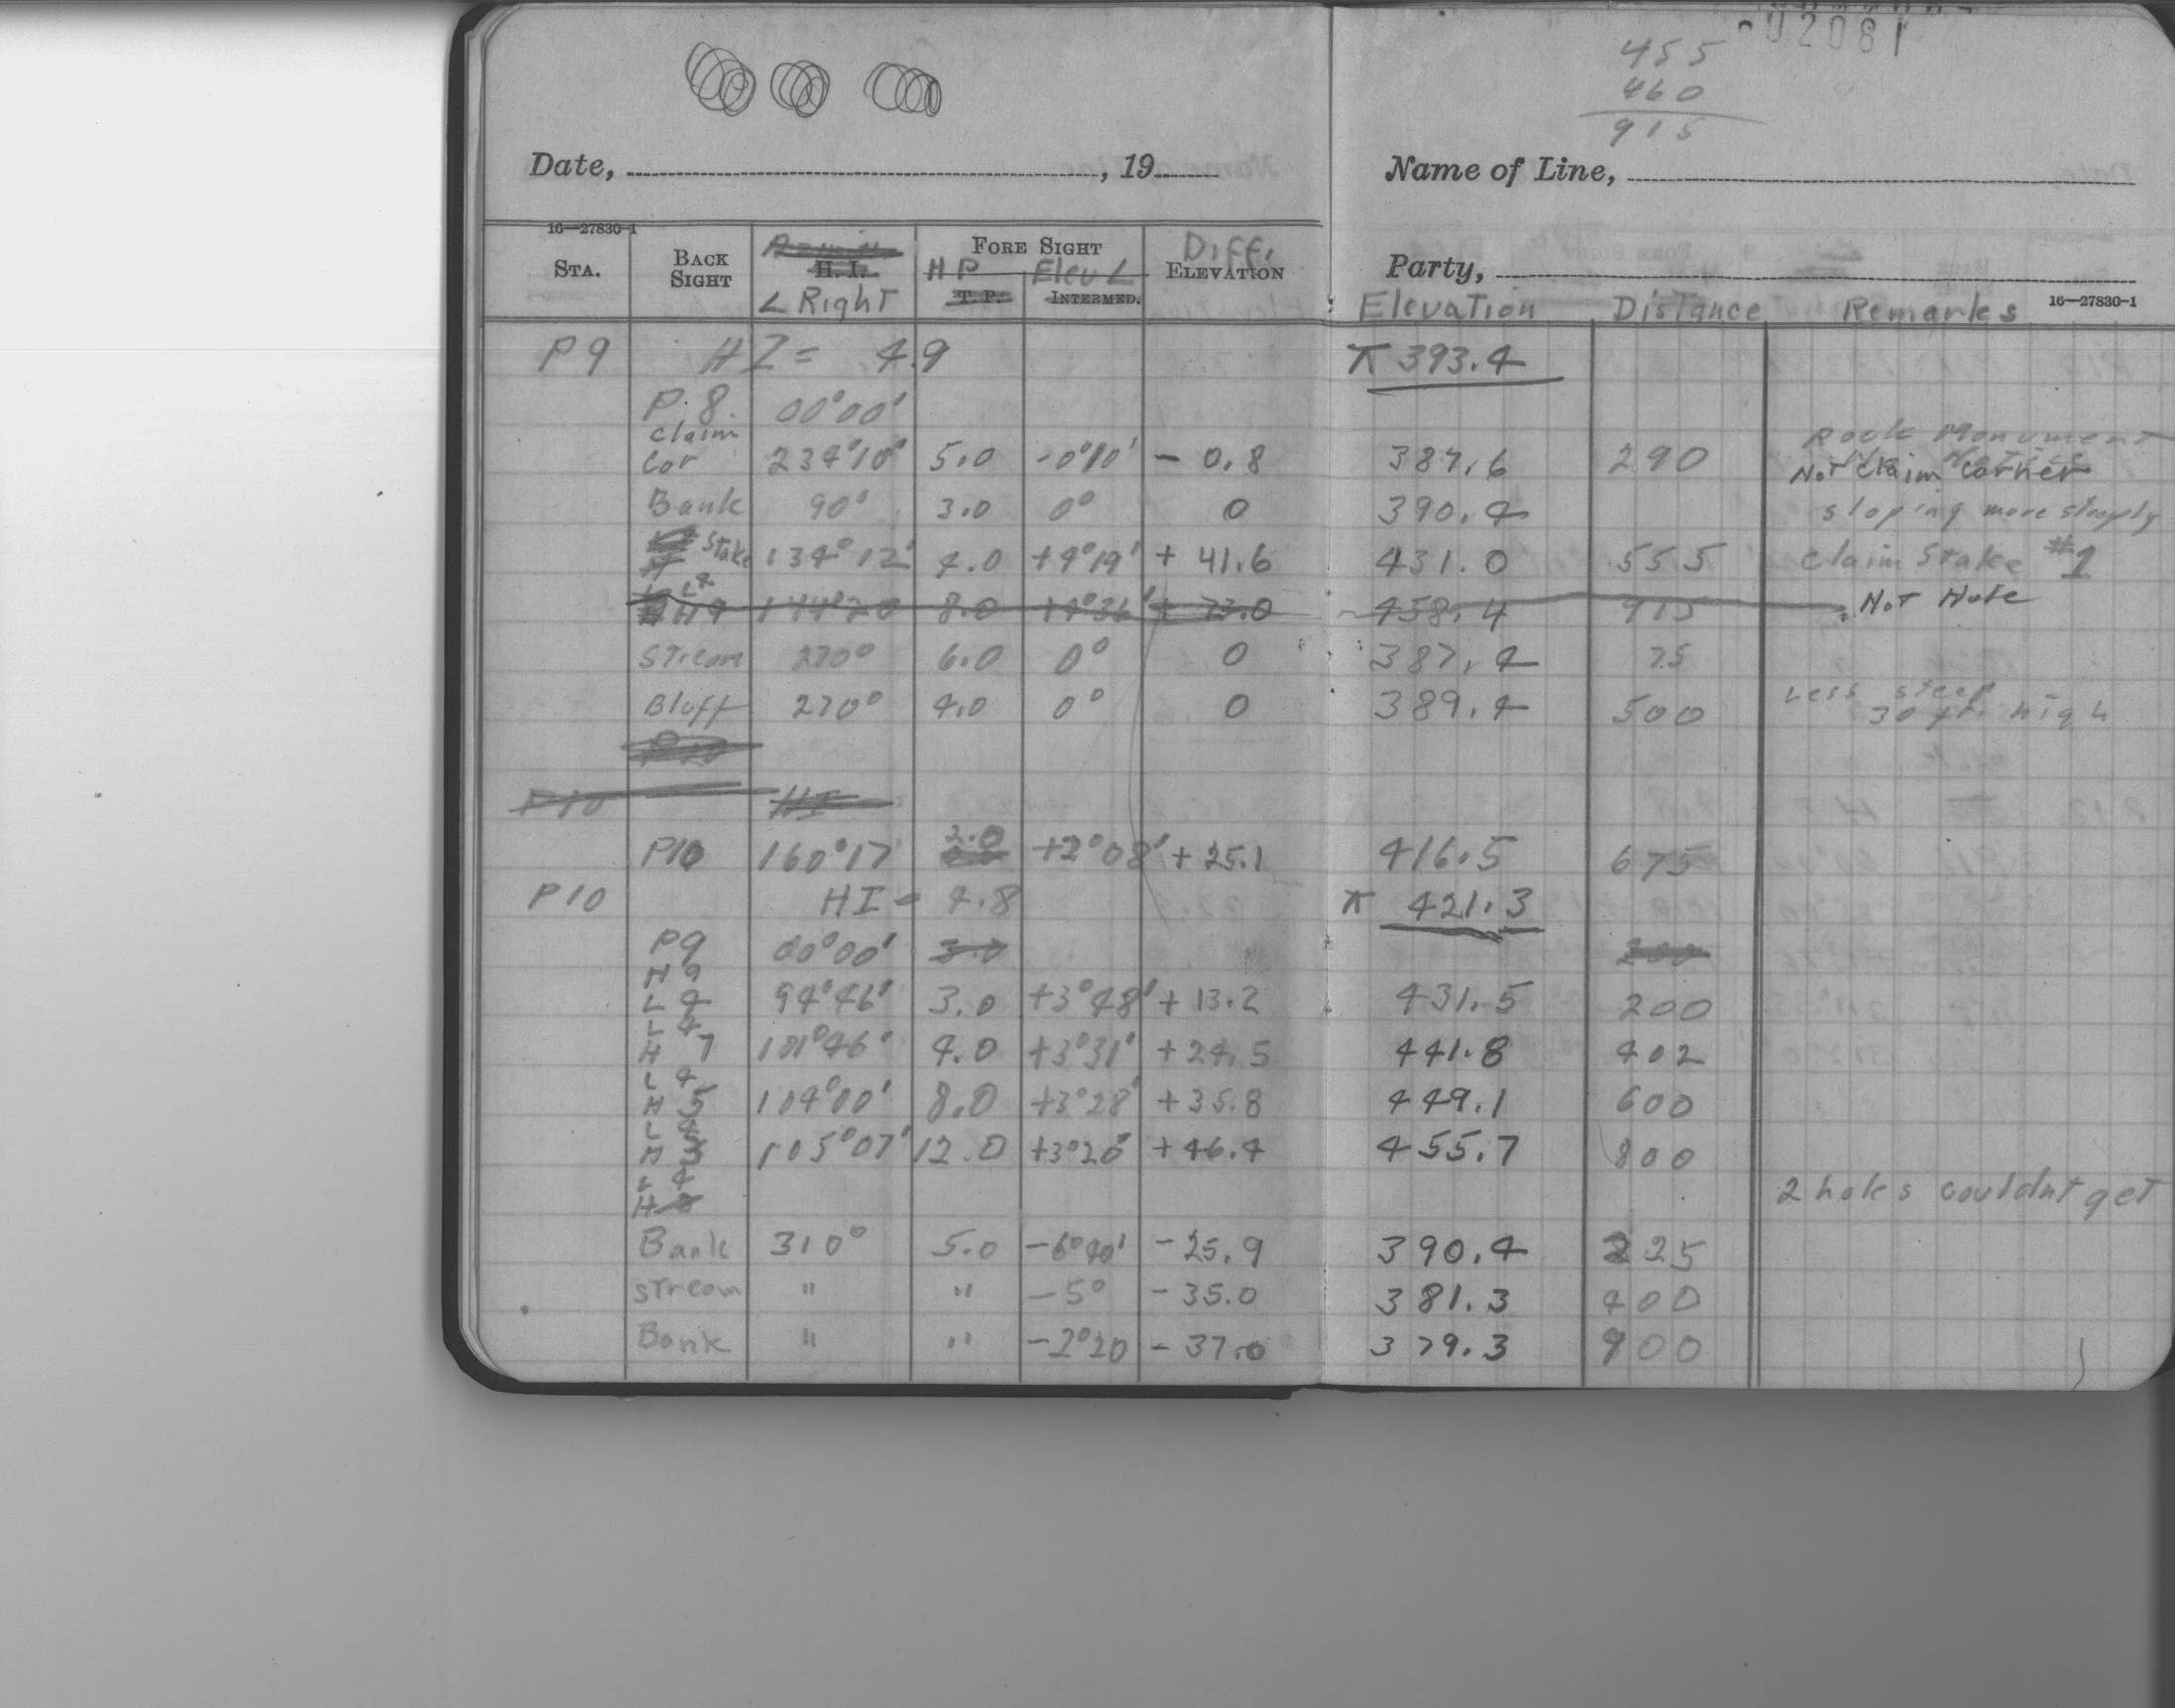 02081
455
460
915
Date, , 19
Name of Line,
16—27830-1
STA. BACK SIGHT H. I. ∠ Right FORE SIGHT H P T. P. Elev ∠ INTERMED. Diff. ELEVATION
Party,
Elevation Distance Remarks 16—27830-1
P9 HI = 4.9 ⊼ 393.4
P.8. 00°00'
Claim Rock Monument
Cor 234°10' 5.0 -0°10' - 0.8 387.6 290 Not Claim Corner
Bank 90° 3.0 0° 0 390.4 sloping more steeply
Stake 134°12' 4.0 +4°19' + 41.6 431.0 555 Claim Stake #1
L4
H9 144°20 8.0 +4°36' + 73.0 458.4 915 Not Hole
Stream 270° 6.0 0° 0 387.4 75
Bluff 270° 4.0 0° 0 389.4 500 Less steep 30 ft. high
P10
P10 HI
P10 160°17 2.0 +2°08' + 25.1 416.5 675
P10 HI = 4.8 ⊼ 421.3
P9 00°00' 3.0 200
H9
L4 94°46' 3.0 +3°48' + 13.2 431.5 200
L4
H 7 101°46' 4.0 +3°31' + 24.5 441.8 402
L4
H 5 104°00' 8.0 +3°28' + 35.8 449.1 600
L4
H 3 105°07' 12.0 +3°20' + 46.4 455.7 800
L 4
H 2 holes couldnt get
Bank 310° 5.0 -6°40' - 25.9 390.4 225
Stream " " -5° - 35.0 381.3 400
Bank " " -2°20 - 37.0 379.3 900